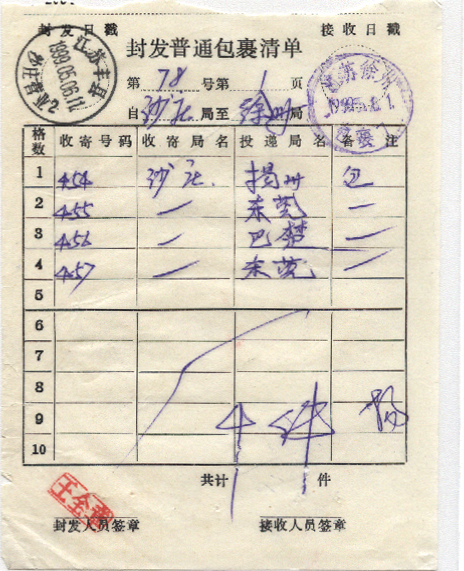 封发日戳 接收日戳
封发普通包裹清单
江苏丰县
1999.05.06.11
第 78 号第 1 页
自 沙庄 局至 徐州 局
江苏徐州
格数 收寄号码 收寄局名 投递局名 备注
1 454 沙庄 扬州 包
2 455 一 东莞 一
3 456 一 巴楚 一
4 457 一 东莞 一
5
6
7
8
9 4件
10
共计 件
王全
封发人员签章 接收人员签章